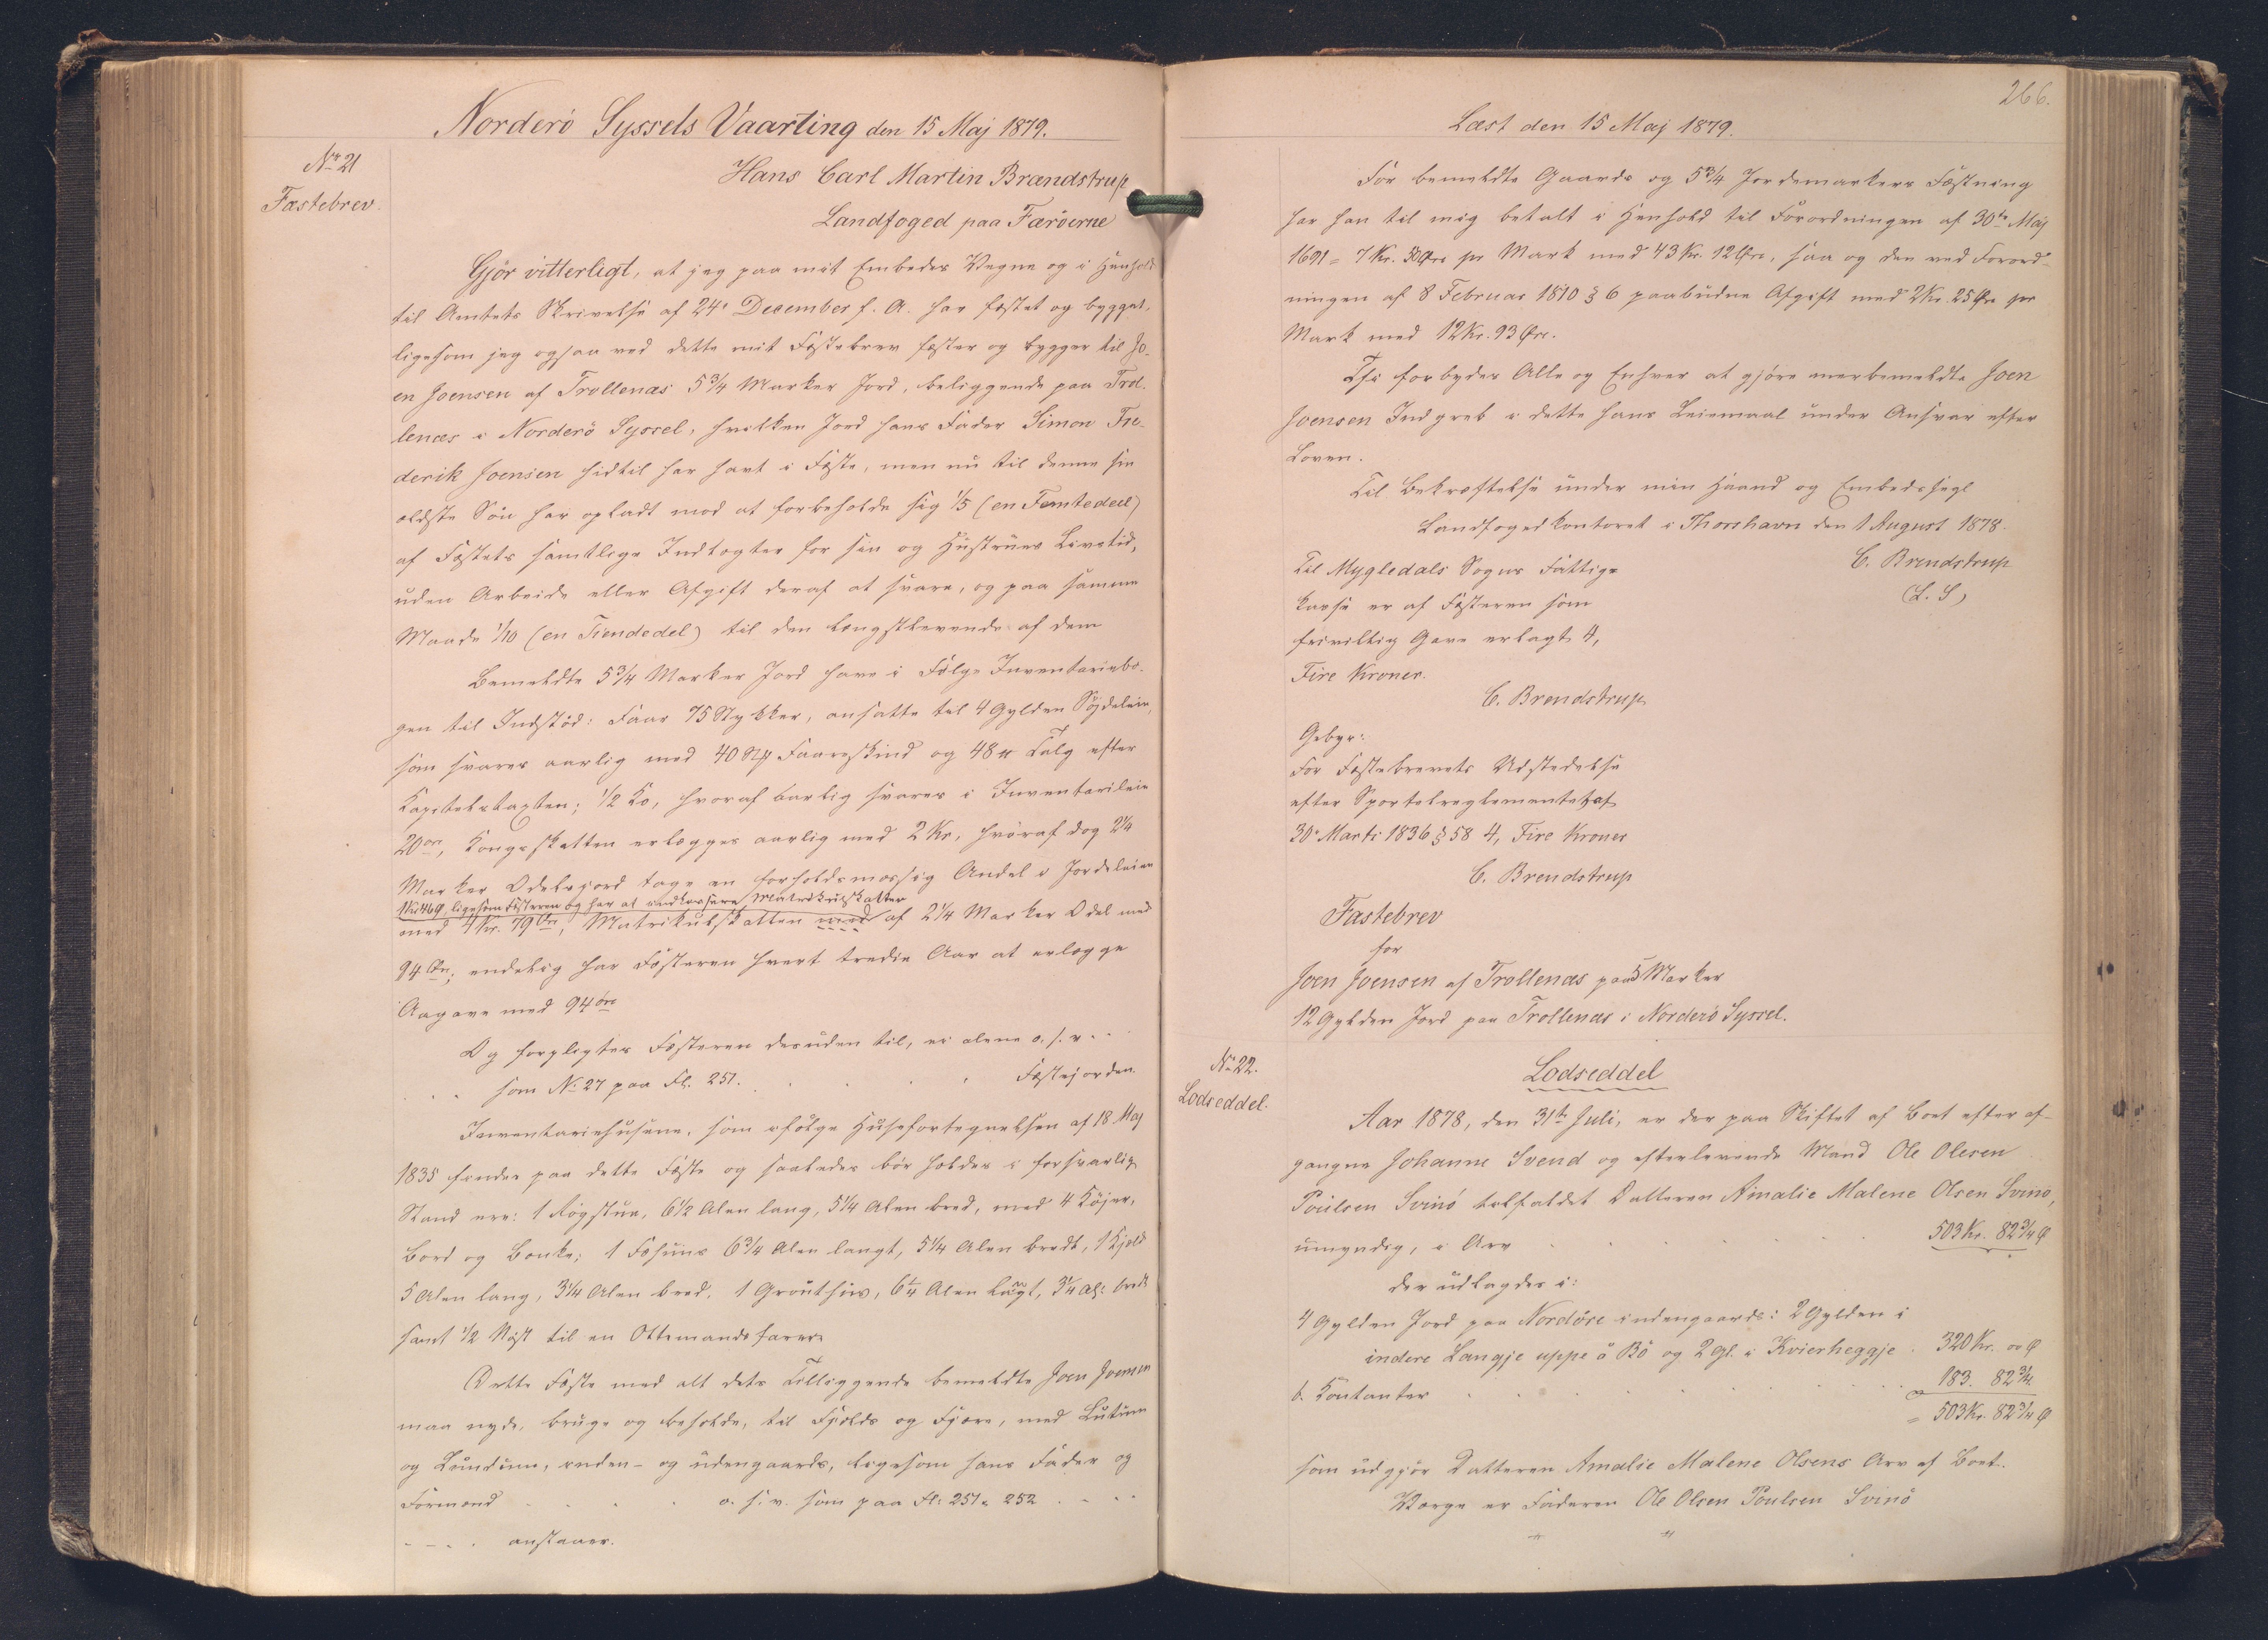 Norderö Syssels Vaarting den 15 Maj 1879.
No 21
Fæstebrev.
Hans Carl Martin Brændstrup
Landfoged paa Færöerne
Gjör vitterligt, at jeg paa mit Embedes Vegne og i Henhold
til Amtets Skrivelse af 24de December f. A. har fæstet og bygget,
ligesom jeg ogsaa ved dette mit Fæstebrev fæster og bygger til Jo-
en Joensen af Trollenæs 5 3/4 Marker Jord, beliggende paa Trol-
lenæs i Norderö Syssel, hvilken Jord hans Fader Simon Fre-
derik Joensen hidtil har havt i Fæste, men nu til denne sin
ældste Sön har opladt mod at forbeholde sig 1/5 (en Femtedeel)
af Fæstets samtlige Indtægter for sin og Hustrues Livstid,
uden Arbeide eller Afgift deraf at svare, og paa samme
Maade 1/10 (en Tiendedel) til den længstlevende af dem
Bemeldte 5 3/4 Marker Jord have i Fölge Inventariebo-
gen til Indstöd: Faar 75 Stykker, ansatte til 4 Gylden Söjdeleie,
som svares aarlig med 40 Stk Faareskind og 48 tt Talg efter
Kapitelstaxten; 1/2 Ko, hvoraf aarlig svares i Inventarileie
20 öre, Kongsskatten erlægges aarlig med 2 Kr., hvoraf dog 2 1/4
Marker Odelsjord tage en forholdsmæssig Andel i Jordeleien
1 Kr 46 Ø, ligesom Fæsteren og har at indkassere Matrikulskatter
med 4 Kr. 79 Øre, Matrikulskatten med af 2 1/4 Marker Odel med
94 Øre; endelig har Fæsteren hvert tredie Aar at erlægge
Aagave med 94 öre
Og forpligtes Fæsteren desuden til, ei alene o. s. v. . .
. . . som No 27 paa Fl. 251. . . . . Fæstejorden.
Inventariehusene, som ifölge Husefortegnelsen af 18 Maj
1835 findes paa dette Fæste og saaledes bör holdes i forsvarlig
Stand ere: 1 Rögstue, 6 1/2 Alen lang, 5 1/4 Alen bred, med 4 Köjer,
Bord og Bænke; 1 Fæhuus 6 3/4 Alen langt, 5 1/4 Alen bredt, 1 Hjeld
5 Alen lang, 3 1/4 Alen bred. 1 Grouthus, 6 1/4 Alen langt, 3 1/4 Al: bredt
samt 1/2 Nöst til en Ottemandsfarer
Dette Fæste med alt dets Tilliggende bemeldte Joen Joensen
maa nyde, bruge og beholde, til Fjelds og Fjære, med Lutum
og Lundum, inden- og udengaards, ligesom hans Fader og
Formænd . . . . o. s. v. som paa Fl: 251 & 252 . . . .
- - . . anstaaer.
266.
Læst den 15 Maj 1879.
For bemeldte Gaards og 5 3/4 Jordemarkers Fæstning
har han til mig betalt i Henhold til Forordningen af 30te Maj
1691 = 7 Kr. 50 Øre pr Mark med 43 Kr. 12 Øre, saa og den ved Forord-
ningen af 8 Februar 1810 § 6 paabudne Afgift med 2 Kr. 25 Øre pr
Mark med 12 Kr. 93 Øre.
Thi forbydes Alle og Enhver at gjöre merbemeldte Joen
Joensen Indgreb i dette hans Leiemaal under Ansvar efter
Loven.
Til Bekræftelse under min Haand og Embedssegl
Landfogedkontoret i Thorshavn den 1 August 1878.
C. Brendstrup
(L. S)
Til Mygledals Sogns Fattig-
kasse er af Fæsteren som
frivillig Gave erlagt 4,
Fire Kroner.
C. Brendstrup
Gebyr:
For Fæstebrevets Udstedelse
efter Sportelreglementet af
30te Marts 1836 § 58 4, Fire Kroner
C. Brendstrup
Fæstebrev
for
Joen Joensen af Trollenæs paa 5 Marker
12 Gylden Jord paa Trollenæs i Norderö Syssel.
No 22.
Lodseddel.
Lodseddel
Aar 1878, den 31te Juli, er der paa Skiftet af Boet efter af-
gangne Johanne Svend og efterlevende Mand Ole Olesen
Poulsen Svinö tilfaldet Datteren Amalie Malene Olsen Svinö,
umyndig, i Arv . . . . . . 503 Kr. 82 3/4 Ø
der udlagdes i:
4 Gylden Jord paa Nordöre indengaards: 2 Gylden i
indere Langje uppe å Bö og 2 Gl. i Kvierheggje . 320 Kr. 00 Ø
b. Kontanter . . . . . . . 183. 82 3/4
= 503 Kr. 82 3/4 Ø
som udgjör Datteren Amalie Malene Olsens Arv af Boet.
Værge er Faderen Ole Olsen Poulsen Svinö